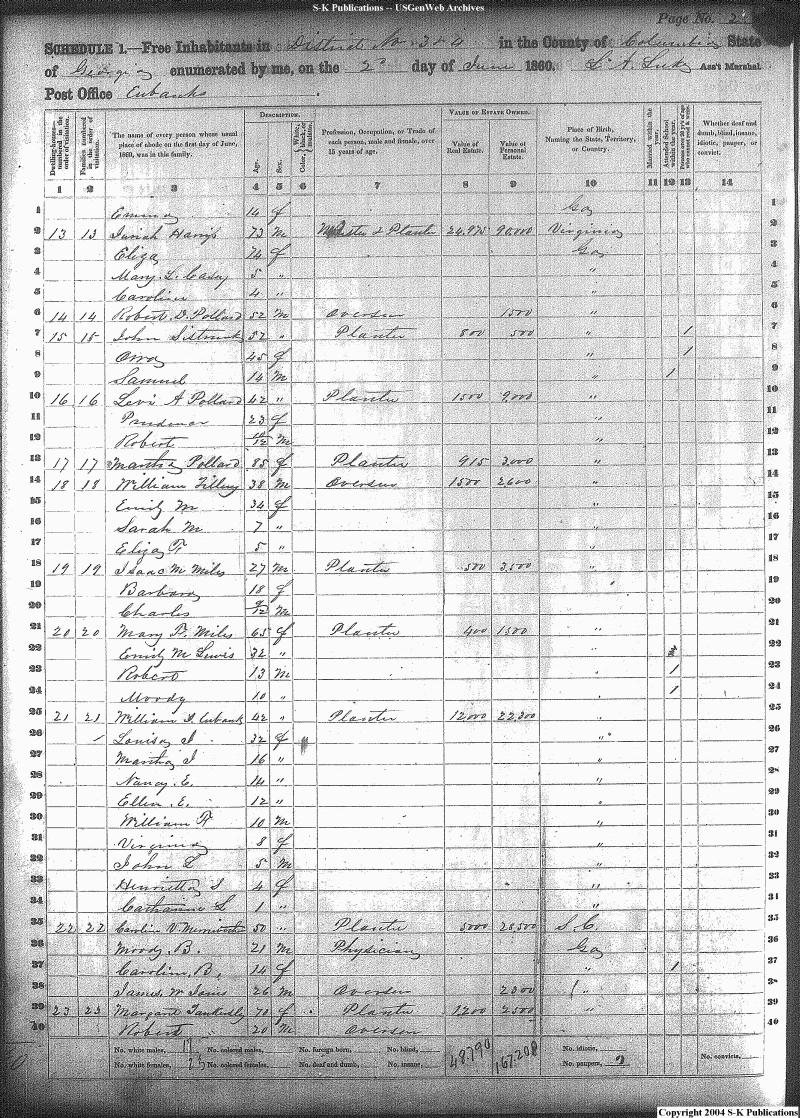 S-K Publications -- USGenWeb Archives
Page No. 2
SCHEDULE 1.—Free Inhabitants in District No 3 & 4 in the County of Columbia State
of Georgia enumerated by me, on the 2d day of June 1860. Ass't Marshal.
Post Office Eubanks
DESCRIPTION. VALUE OF ESTATE OWNED.
Dwelling-houses—numbered in the order of visitation. Families numbered in the order of visitation. The name of every person whose usual place of abode on the first day of June, 1860, was in this family. Age. Sex. Color, White, black, or mulatto. Profession, Occupation, or Trade of each person, male and female, over 15 years of age. Value of Real Estate. Value of Personal Estate. Place of Birth, Naming the State, Territory, or Country. Married within the year. Attended School within the year. Persons over 20 y'rs of age who cannot read & write. Whether deaf and dumb, blind, insane, idiotic, pauper, or convict.
1 2 3 4 5 6 7 8 9 10 11 12 13 14
1 Emma 14 f Ga 1
2 13 13 Harris 73 M Minister & Planter 24,975 90,000 Virginia 2
3 Eliza 74 f Ga 3
4 Mary L. Casey 5 " " 4
5 Caroline 4 " " 5
6 14 14 Robert D. Pollard 52 M Overseer 1500 " 6
7 15 15 John Sistrunk 52 " Planter 800 500 " 1 7
8 45 f " 1 8
9 Samuel 14 M " 1 9
10 16 16 Levi A Pollard 42 " Planter 1500 9,000 " 10
11 23 f " 11
12 Robert M " 12
13 17 17 Martha Pollard 85 f Planter 915 3,000 " 13
14 18 18 William Tillery 38 M Overseer 1500 2600 " 14
15 Emily M 34 f " 15
16 Sarah M 7 " " 16
17 Eliza F. 5 " " 17
18 19 19 Isaac M Miles 27 M Planter 500 3,500 " 18
19 Barbara 18 f " 19
20 Charles 9/12 M " 20
21 20 20 Mary F. Miles 65 f Planter 400 1500 " 21
22 Emily M Lewis 32 " " 22
23 Robert 13 M " 1 23
24 Moody 10 " " 1 24
25 21 21 William I. Eubank 42 " Planter 12,000 22,300 " 25
26 Louisa I 32 f " 26
27 Martha I 16 " " 27
28 Nancy E. 14 " " 28
29 Ellen E. 12 " " 29
30 William 10 M " 30
31 Virginia 8 f " 31
32 John L 5 M " 32
33 Henrietta I 4 f " 33
34 Catharine L 1 " " 34
35 22 22 Caroline V. 50 " Planter 5000 28,500 S. C. 35
36 Moody, B. 21 M Physician Ga 36
37 Caroline, B. 14 f " 1 37
38 James W 26 M Overseer 2000 " 38
39 23 23 Margaret Tankersly 70 f Planter 1200 2500 " 39
40 Robert " 20 M Overseer " 40
No. white males, 17 No. colored males, No. foreign born, No. blind, 48,790 167,200 No. idiotic,
No. white females, 23 No. colored females, No. deaf and dumb, No. insane, No. paupers, 2 No. convicts,
Copyright 2004 S-K Publications